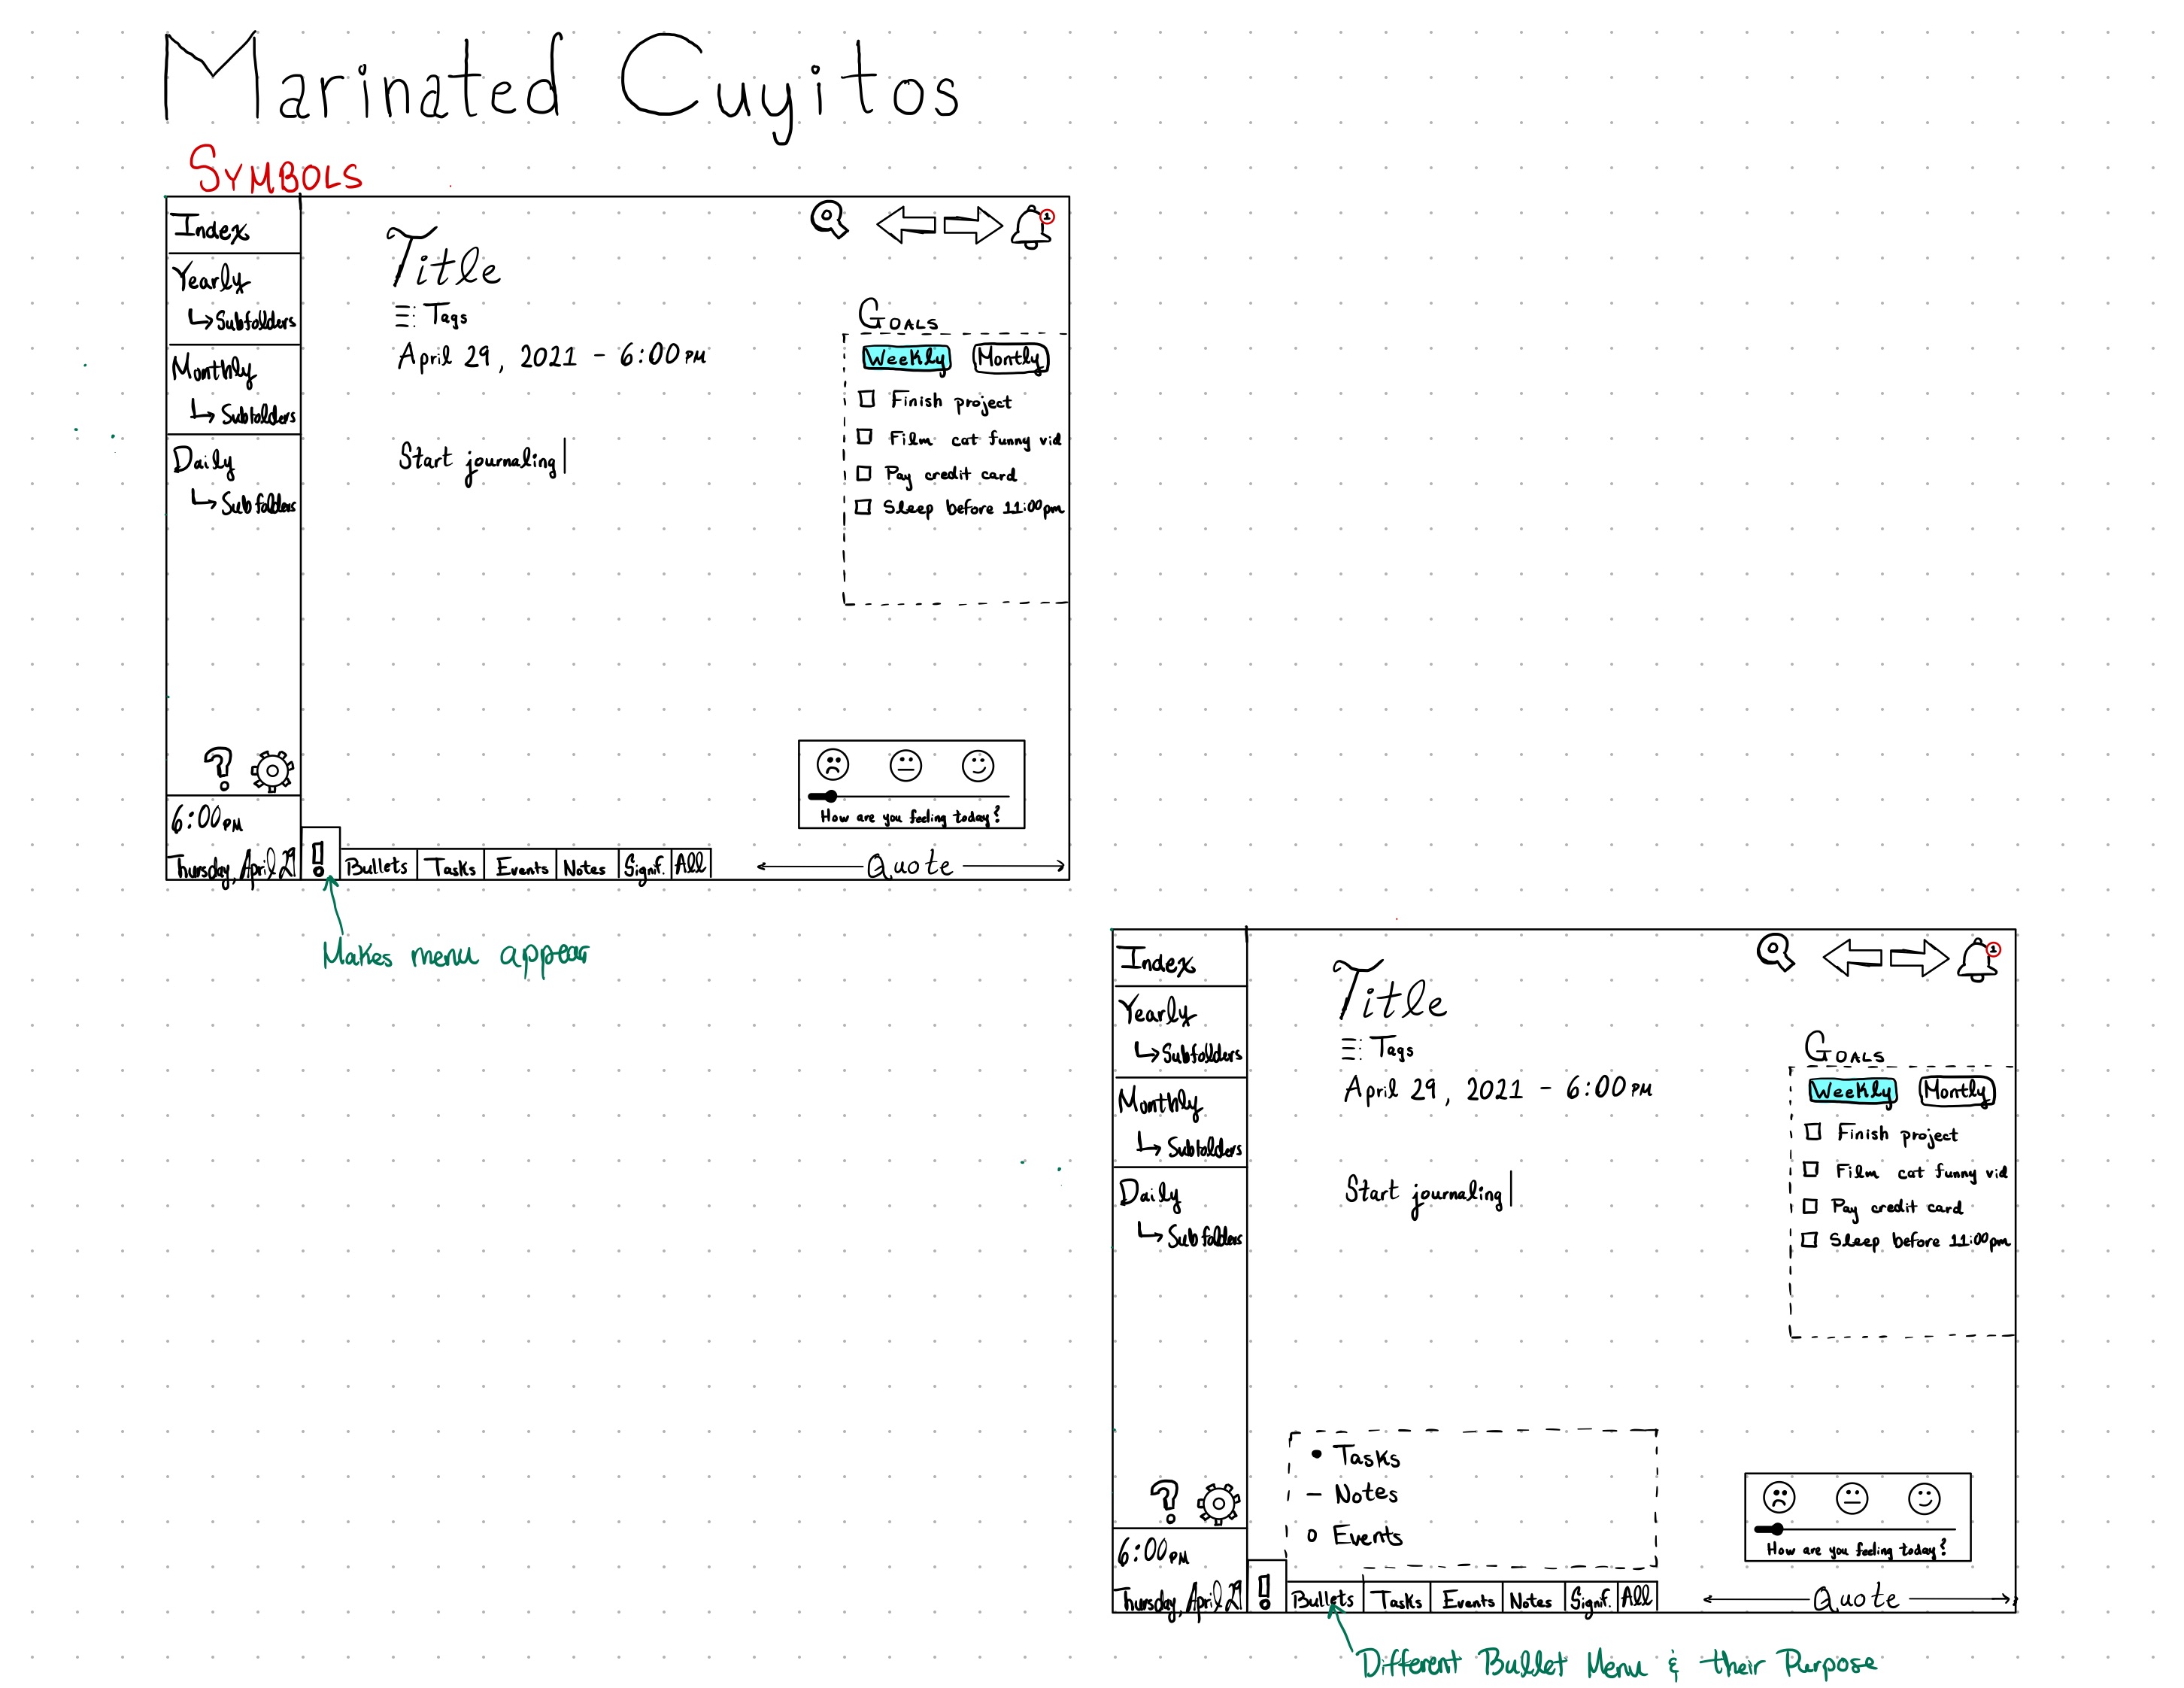 Marinated Cuyitos
SYMBOLS
Index
Yearly
Subfolders
Monthly
Subfolders
Daily
Subfolders
?
6:00 PM
Thursday, April 29
Title
Tags
April 29, 2021 - 6:00 PM
Start journaling
1
GOALS
Weekly Montly
Finish project
Film cat funny vid
Pay credit card
Sleep before 11:00pm
How are you feeling today?
! Bullets Tasks Events Notes Signif. All
Quote
Makes menu appear
Index
Yearly
Subfolders
Monthly
Subfolders
Daily
Subfolders
?
6:00 PM
Thursday, April 29
Title
Tags
April 29, 2021 - 6:00 PM
Start journaling
1
GOALS
Weekly Montly
Finish project
Film cat funny vid
Pay credit card
Sleep before 11:00pm
• Tasks
– Notes
o Events
How are you feeling today?
! Bullets Tasks Events Notes Signif. All
Quote
Different Bullet Menu & their Purpose